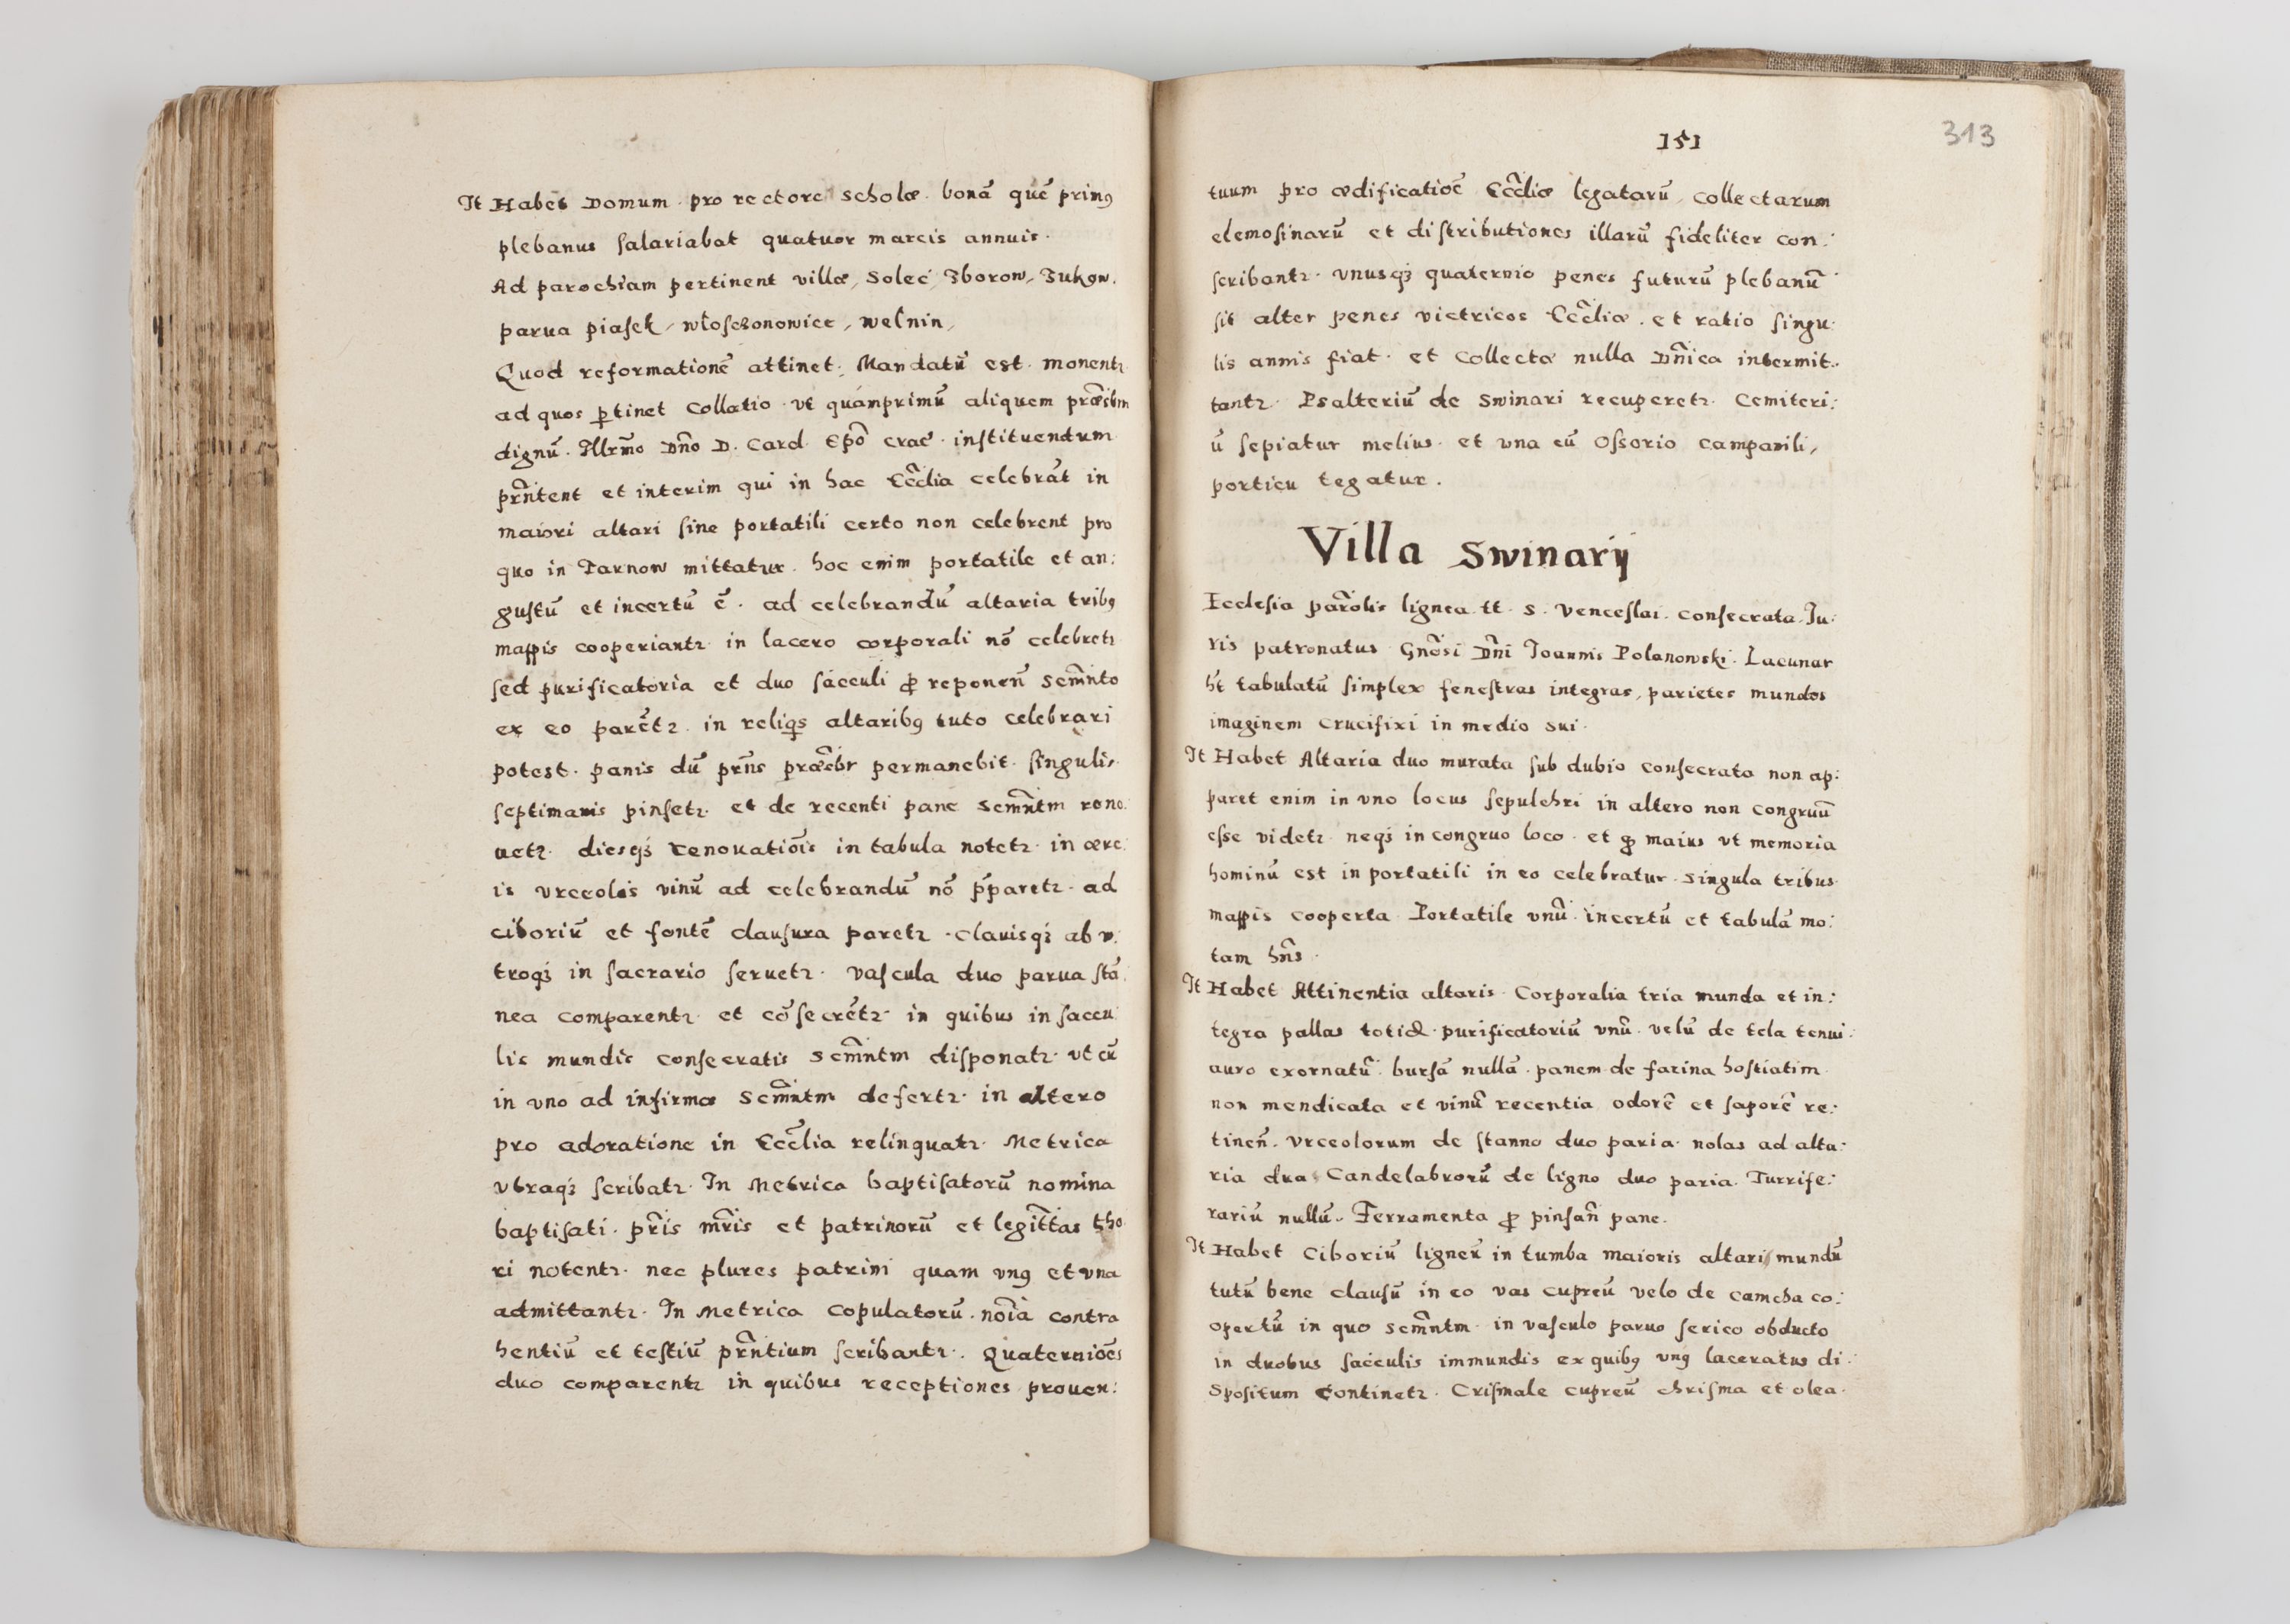 It Habet Domum pro rectore scholæ bonã quẽ primꝯ
plebanus salariabat quatuor marcis annuis.
Ad parochiam pertinent villæ, Solec, Zborow, Zukow,
parua piasek, Włoschonowice, Welnin,
Quod reformationẽ attinet. Mandatũ est. monentꝛ
ad quos ꝑtinet collatio vt quàmprimũ aliquem præ̃sbm
dignũ. Illr̃mo Dño D. Card. Ep̃o Crac̃. instituendum
pñtent et interim qui in hac Ecc̃lia celebrãt in
maiori altari sine portatili certo non celebrent pro
quo in Tarnow mittatur. hoc enim portatile et an:
gustũ et incertũ ẽ. ad celebrandũ altaria tribꝯ
mappis cooperiantꝛ in lacero corporali nõ celebretꝛ
sed purificatoria et duo sacculi ꝓ reponeñ Scm̃nto
ex eo parẽtꝛ. in reliqs altaribꝯ tuto celebrari
potest. panis dũ pr̃ns præ̃sbr permanebit singulis
septimanis pinsetꝛ et de recenti pane Scm̃ntm reno:
uetꝛ. diesqꝫ renouatiõis in tabula notetꝛ. in ære:
is vrceolis vinũ ad celebrandũ nõ p̃paretꝛ. ad
ciboriũ et fontẽ clausura paretꝛ. clauisqꝫ ab v:
troqꝫ in sacrario seruetꝛ. vascula duo parua stã:
nea comparentꝛ et cõsecrẽtꝛ in quibus in saccu:
lis mundis consecratis Scm̃ntm disponatꝛ. vt cũ
in vno ad infirmos Scm̃ntm defertꝛ. in altero
pro adoratione in Ecc̃lia relinquatꝛ. Metrica
vtraqꝫ scribatꝛ. In Metrica baptisatorũ nomina
baptisati. pr̃is mr̃is et patrinorũ et legitt̃as tho:
ri notentꝛ. nec plures patrini quam vnꝯ et vna
admittantꝛ. In Metrica copulatorũ. noĩa contra
hentiũ et testiũ pr̃ntium scribantꝛ. Quaterniões
duo comparentꝛ in quibus receptiones prouen:
151
313
tuum pro ædificatiõe Ecc̃liæ legatarũ, collectarum
elemosinarũ et distributiones illarũ fideliter con:
scribantꝛ. vnusqꝫ quaternio penes futurũ plebanũ
sit alter penes victricos Ecc̃liæ. et ratio singu:
lis annis fiat. et collecta nulla Dñica intermit:
tantꝛ. Psalteriũ de Swinari recuperetꝛ. Cemiteri:
ũ sepiatur melius et vna cũ Ossorio campanili,
porticu tegatur.
Villa Swinarÿ
Ecclesia par̃olis lignea tt. S. Venceslai. consecrata. Iu:
ris patronatus Gñosi Dñi Joannis Polanowski. Lacunar
h̃t tabulatũ simplex fenestras integras, parietes mundos
imaginem crucifixi in medio sui.
It Habet Altaria duo murata sub dubio consecrata non ap:
paret enim in vno locus sepulchri in altero non congruũ
esse videtꝛ neqꝫ in congruo loco. et ꝙ maius vt memoria
hominũ est in portatili in eo celebratur. singula tribus
mappis cooperta Portatile vnũ incertũ et tabulã mo:
tam hñs.
It Habet Attinentia altaris Corporalia tria munda et in:
tegra pallas totid. purificatoriũ vnũ. velũ de tela tenui:
auro exornatũ. bursã nullã. panem de farina hostiatim
non mendicata et vinũ recentia odorẽ et saporẽ re:
tineñ. Vrceolorum de stanno duo paria nolas ad alta:
ria dua Candelabrorũ de ligno duo paria. Turrife:
rariũ nullũ. Ferramenta ꝓ pinsañ pane.
It Habet Ciboriũ ligneũ in tumba maioris altari mundũ
tutũ bene clausũ in eo vas cupreũ velo de camcha co:
opertũ in quo Scm̃ntm in vasculo paruo serico obducto
in duobus sacculis immundis ex quibꝯ vnꝯ laceratus di:
spositum continetꝛ. Crismale cupreũ chrisma et olea.